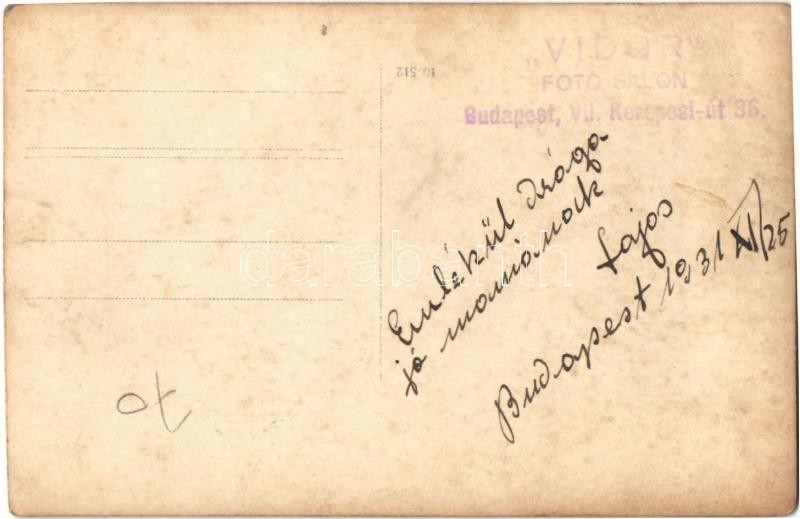 „VIDOR”
FOTO SALON
Budapest, VII. Kerepesi-út 36.
10.512
Emlékül drága
jó mamának
Lajos
Budapest 1931 XI/25
darabanth